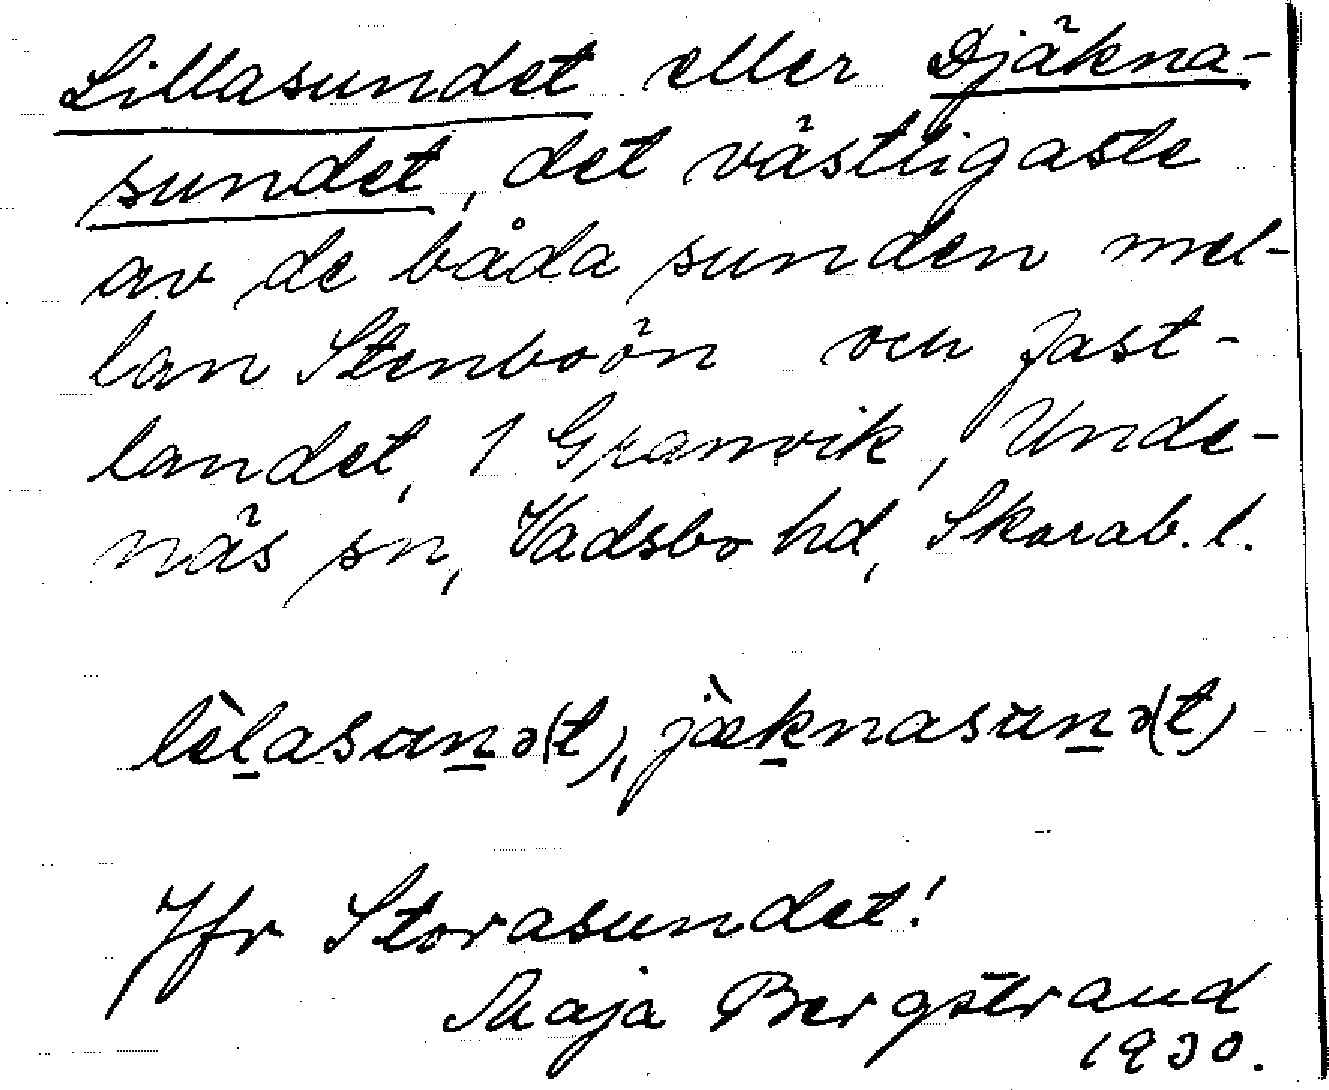 Lillasundet eller Djäkna-
sundet, det västligaste
av de båda sunden mel-
lan Stenboön och fast-
landet, 1 Granvik, Unde-
näs sn, Vadsbo hd, Skarab. l.
lèl̠asɯn̠ə(t), jæ̀k̠nasɯn̠ə(t)
Jfr Storasundet!
Maja Bergstrand
1930.